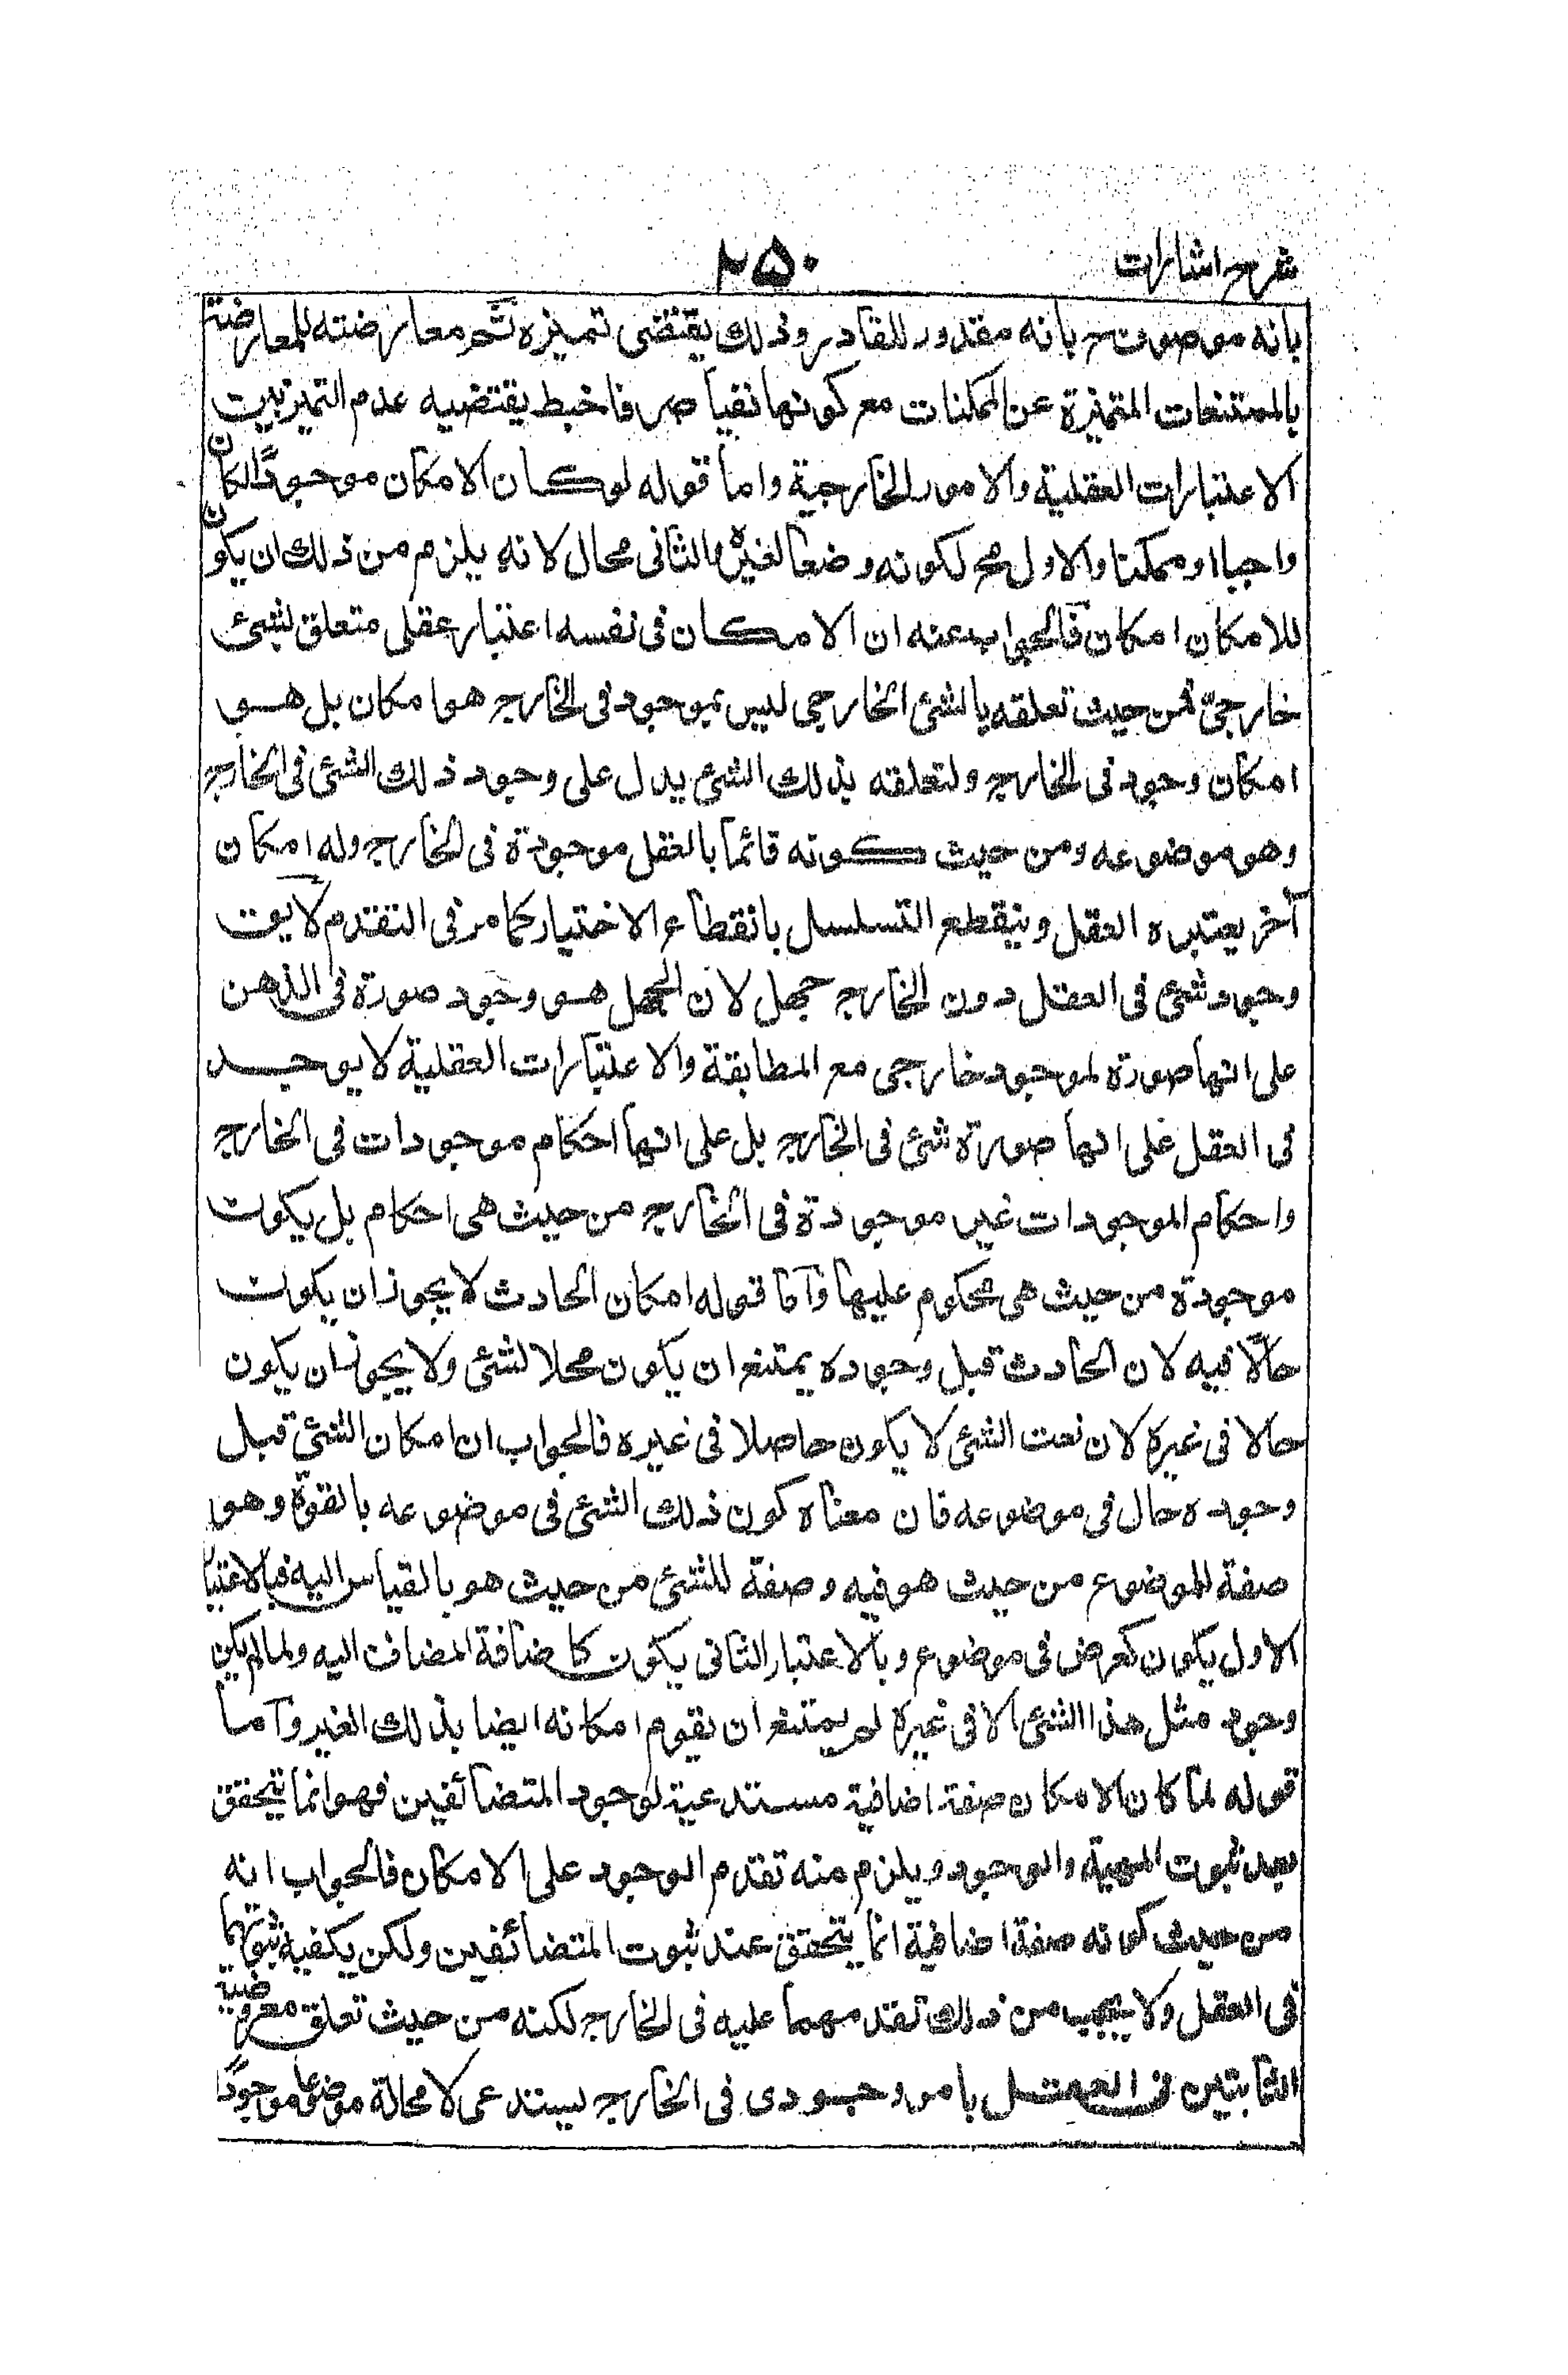 شرح اشارات
٢٥٠
بانه موصوف بانه مقدور للقادر وذلك يقتضى تميزه ثم معارضته للمعارضة
بالممتنعات المتميزة عن الممكنات مع كونها نفيا صرفا خبط يقتضيه عدم التميز بين
الاعتبارات العقلية والامور الخارجية واما قوله لو كان الامكان موجودًا لكان
واجبا او ممكنا والاول مح لكونه وضعا لغيره والثانى محال لانه يلزم من ذلك ان يكون
للامكان امكان فالجواب عنه ان الامكان فى نفسه اعتبار عقلى متعلق لشئ
خارجى فمن حيث تعلقه بالشئ الخارجى ليس بموجود فى الخارج هو امكان بل هو
امكان وجود فى الخارج ولتعلقه بذلك الشئ يدل على وجود ذلك الشئ فى الخارج
وهو موضوعه ومن حيث كونه قائما بالعقل موجودة فى الخارج وله امكان
آخر يعتبره العقل وينقطع التسلسل بانقطاع الاختيار كما مر فى التقدم لايق
وجود شئ فى العقل دون الخارج جهل لان الجهل هو وجود صورة فى الذهن
على انها صورة لموجود خارجى مع المطابقة والاعتبارات العقلية لا يوجد
فى العقل على انها صورة شئ فى الخارج بل على انها احكام موجودات فى الخارج
واحكام الموجودات غير موجودة فى الخارج من حيث هى احكام بل يكون
موجودة من حيث هى محكوم عليها وآما قوله امكان الحادث لا يجوز ان يكون
حالّا فيه لان الحادث قبل وجوده يمتنع ان يكون محلا لشئ ولا يجوز ان يكون
حالا فى غيره لان نعت الشئ لا يكون حاصلا فى غيره فالجواب ان امكان الشئ قبل
وجوده حال فى موضوعه فان معناه كون ذلك الشئ فى موضوعه بالقوة وهو
صفة للموضوع من حيث هو فيه وصفة للشئ من حيث هو بالقياس اليه فبالاعتبار
الاول يكون كعرض فى موضوع وبالاعتبار الثانى يكون كاضافة المضاف اليه ولما لم يكن
وجود مثل هذا الشئ الا فى غيره لم يمتنع ان يقوم امكانه ايضا بذلك الغير وآما
قوله لما كان الامكان صفة اضافية مستدعية لوجود المتضائفين فهو انما يتحقق
بعد ثبوت المهية والوجود ويلزم منه تقدم الوجود على الامكان فالجواب انه
من حيث كونه صفة اضافية انما يتحقق عند ثبوت المتضائفين ولكن يكفيه ثبوتهما
فى العقل ولا يجب من ذلك تقدمهما عليه فى الخارج لكنه من حيث تعلق معروضيه
الثابتين فى العقل بامر وجودى فى الخارج يستدعى لا محالة موضوعا موجودًا